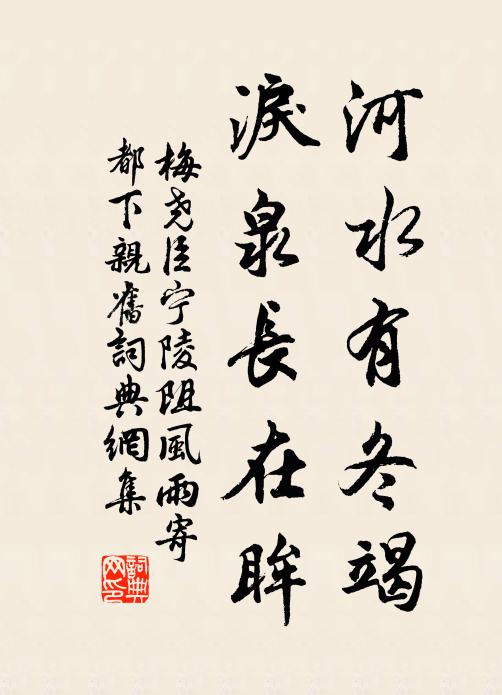 河水有冬竭
淚泉長在眸
梅尧臣宁陵阻風雨寄
都下親舊詞典網集
詞典
网印